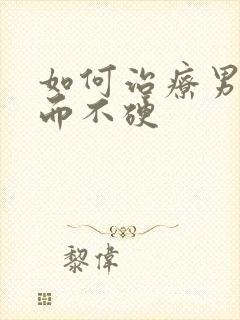 如何治療男
而不硬
黎偉